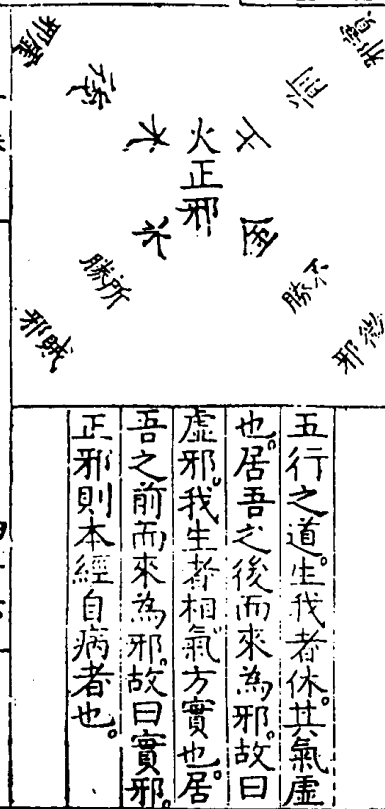 實邪
前
土
虛邪
後
木
火正邪
金
不勝
微邪
水
所勝
賊邪
五行之道。生我者休。其氣虛
也。居吾之後而來為邪。故曰
虛邪。我生者相氣方實也。居
吾之前而來為邪。故曰實邪。
正邪則本經自病者也。